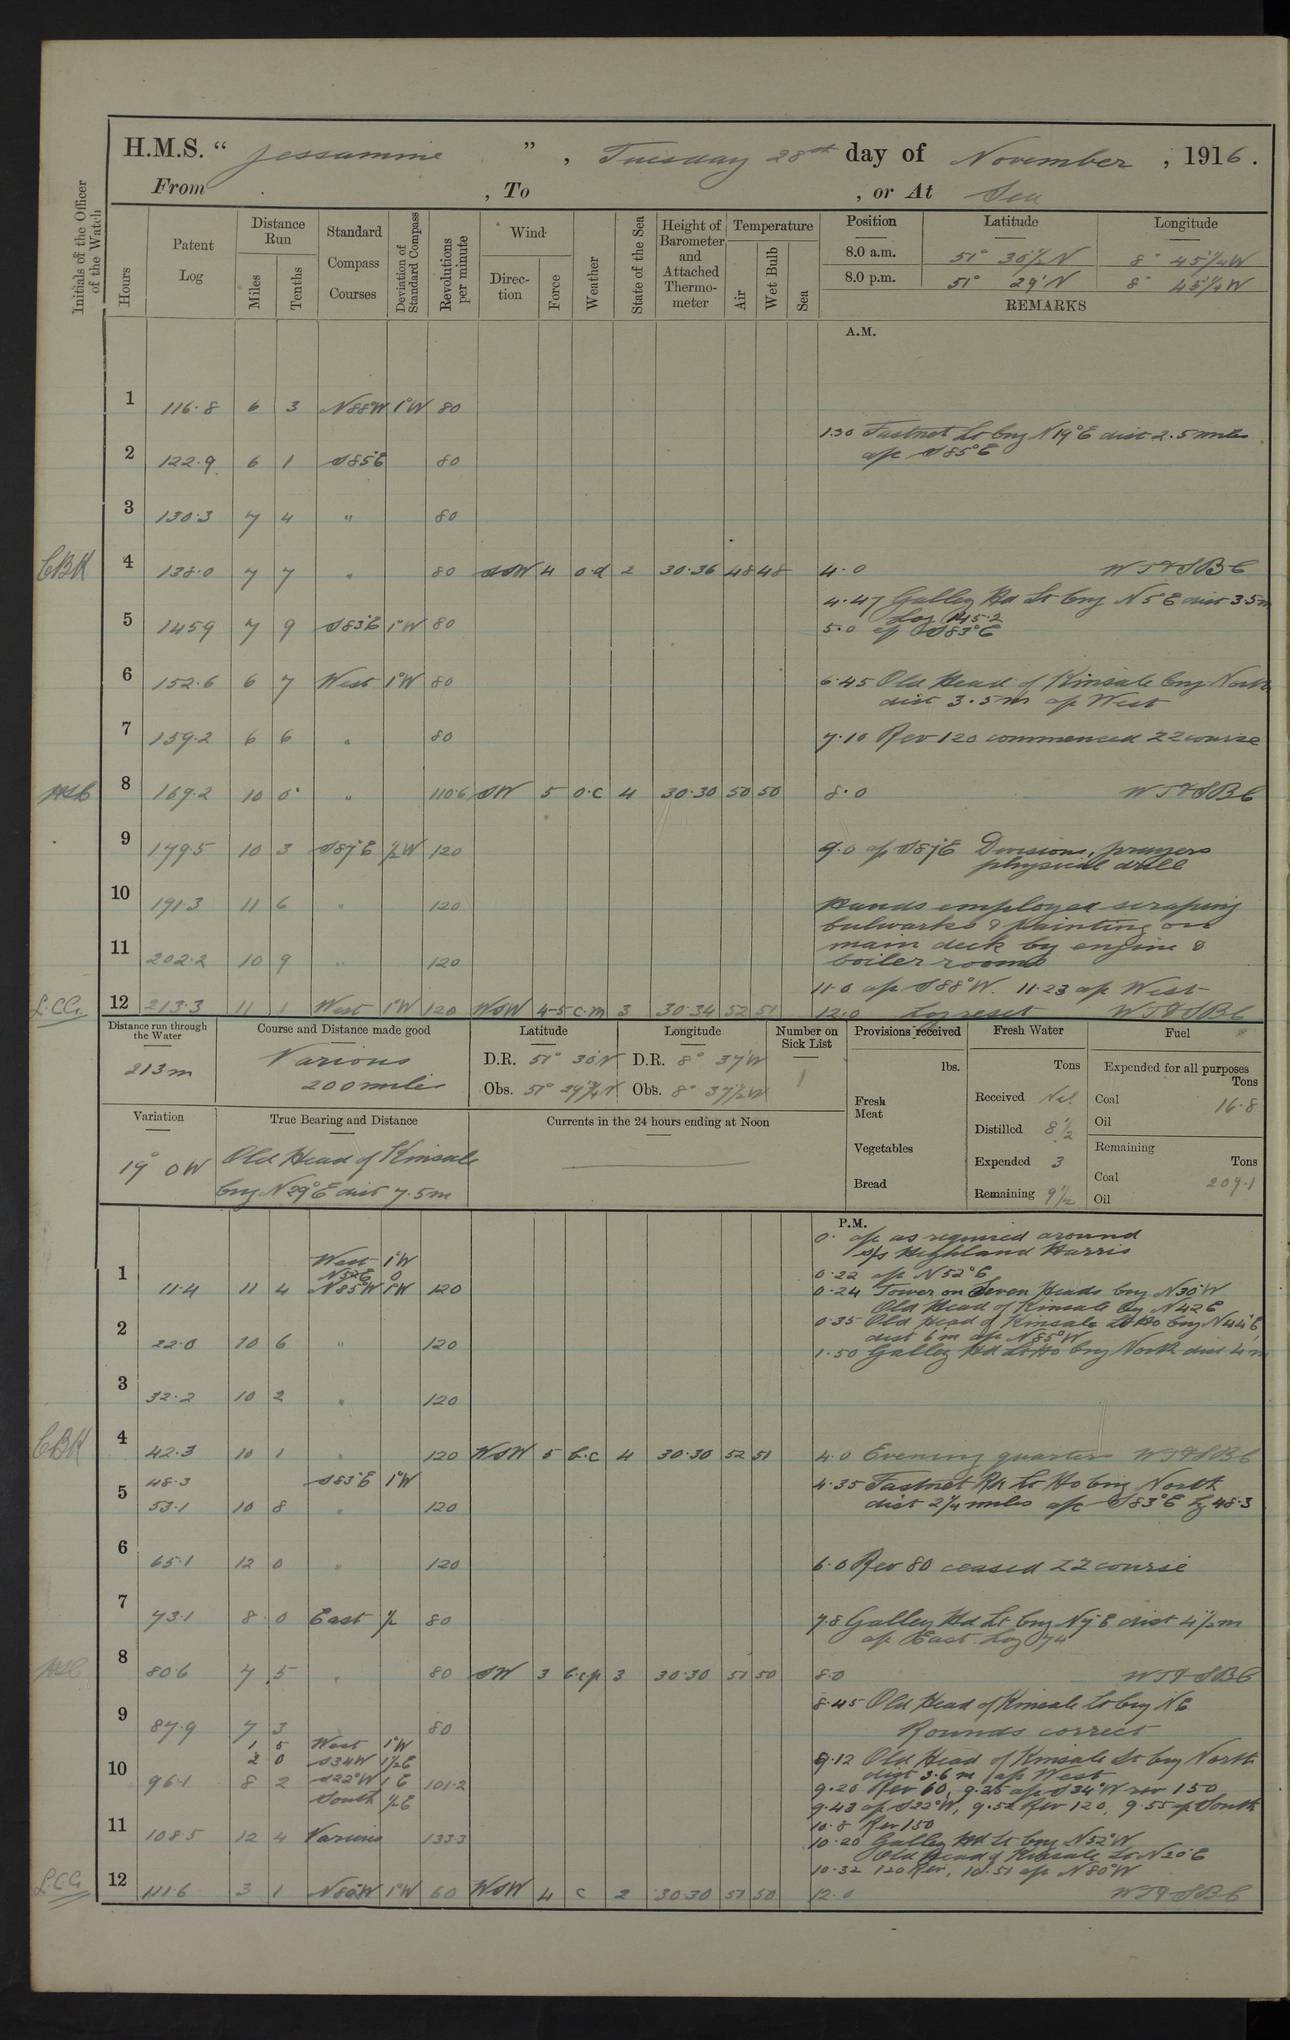 H.M.S. " Jessamine ", Tuesday 28th day of November, 1916.
From , To , or At Sea
Initials of the Officer of the Watch
Hours
Patent Log
Distance Run
Miles
Tenths
Standard Compass Courses
Deviation of Standard Compass
Revolutions per minute
Wind
Direction
Force
Weather
State of the Sea
Height of Barometer and Attached Thermometer
Temperature
Air
Wet Bulb
Sea
Position Latitude Longitude
8.0 a.m. 51° 30½' N 8° 45¼' W
8.0 p.m. 51° 29' N 8° 45¼' W
REMARKS
A.M.
1 116.8 6 3 N88°W 1°W 80
1.30 Fastnet Lt brg N19°E dist 2.5 miles
a/c S85°E
2 122.9 6 1 S85°E 80
3 130.3 7 4 " 80
CBK 4 138.0 7 7 " 80 SSW 4 o.d 2 30.36 48 48 4.0 WT&SBC
4.47 Galley Hd Lt brg N5°E dist 3.5m
Log 145.2
5 145.9 7 9 S83°E 1°W 80 5.0 a/c S83°E
6 152.6 6 7 West 1°W 80 6.45 Old Head of Kinsale brg North
dist 3.5m a/c West
7 159.2 6 6 " 80 7.10 Rev 120 commenced ZZ course
8 169.2 10 0 " 110.6 SW 5 o.c 4 30.30 50 50 8.0 WT&SBC
9 179.5 10 3 S87°E ½W 120 9.0 a/c S87°E Divisions, prayers
physical drill
10 191.3 11 6 " 120 Hands employed scraping
bulwarks & painting on
11 202.2 10 9 " 120 main deck by engine &
boiler rooms
11.0 a/c S88°W. 11.23 a/c West
L.C.G. 12 213.3 11 1 West 1°W 120 WSW 4-5 c.m 3 30.34 52 51 12.0 Log reset WT&SBC
Distance run through the Water
213m
Course and Distance made good
Various
200 miles
Latitude
D.R. 51° 30' N
Obs. 51° 29¾' N
Longitude
D.R. 8° 37' W
Obs. 8° 37½' W
Number on Sick List
1
Provisions received
lbs.
Fresh Meat
Vegetables
Bread
Fresh Water
Tons
Received Nil
Distilled 8½
Expended 3
Remaining 9½
Fuel
Expended for all purposes
Tons
Coal 16.8
Oil
Remaining
Tons
Coal 209.1
Oil
Variation
19° 0 W
True Bearing and Distance
Old Head of Kinsale
brg N29°E dist 7.5m
Currents in the 24 hours ending at Noon
P.M.
0. a/c as required around
s/s Highland Harris
West 1°W
N52°E 0 0.22 a/c N52°E
1 11.4 11 4 N85°W 1°W 120 0.24 Tower on Seven Heads brg N30°W
Old Head of Kinsale brg N42°E
0.35 Old Head of Kinsale Lt Ho brg N44°E
dist 6m a/c N85°W
2 22.0 10 6 " 120 1.50 Galley Hd Lt Ho brg North dist 4m
3 32.2 10 2 " 120
CBK 4 42.3 10 1 " 120 WSW 5 b.c 4 30.30 52 51 4.0 Evening quarters WT&SBC
48.3 S83°E 1°W 4.35 Fastnet Rk Lt Ho brg North
5 53.1 10 8 " 120 dist 2¼ miles a/c S83°E Lg 48.3
6 65.1 12 0 " 120 6.0 Rev 80 ceased ZZ course
7 73.1 8 0 East ½ 80 7.8 Galley Hd Lt brg N7°E dist 4½m
a/c East Log 74
8 80.6 7 5 " 80 SW 3 b.c.p 3 30.30 51 50 8.0 WT&SBC
8.45 Old Head of Kinsale Lt brg NE
9 87.9 7 3 80 Rounds correct
1 5 West 1°W
2 0 S34°W 1½E 9.12 Old Head of Kinsale Lt brg North
dist 3.6m a/c West
10 96.1 8 2 S22°W 1°E 101.2 9.20 Rev 60, 9.25 a/c S34°W rev 150
South ½E 9.43 a/c S22°W, 9.52 Rev 120, 9.55 a/c South
10.8 Rev 150
11 108.5 12 4 Various 133.3 10.20 Galley Hd Lt brg N52°W
Old Head of Kinsale Lt N20°E
10.32 120 Rev, 10.51 a/c N80°W
L.C.G. 12 111.6 3 1 N80°W 1°W 60 WSW 4 c 2 30.30 51 50 12.0 WT&SBC